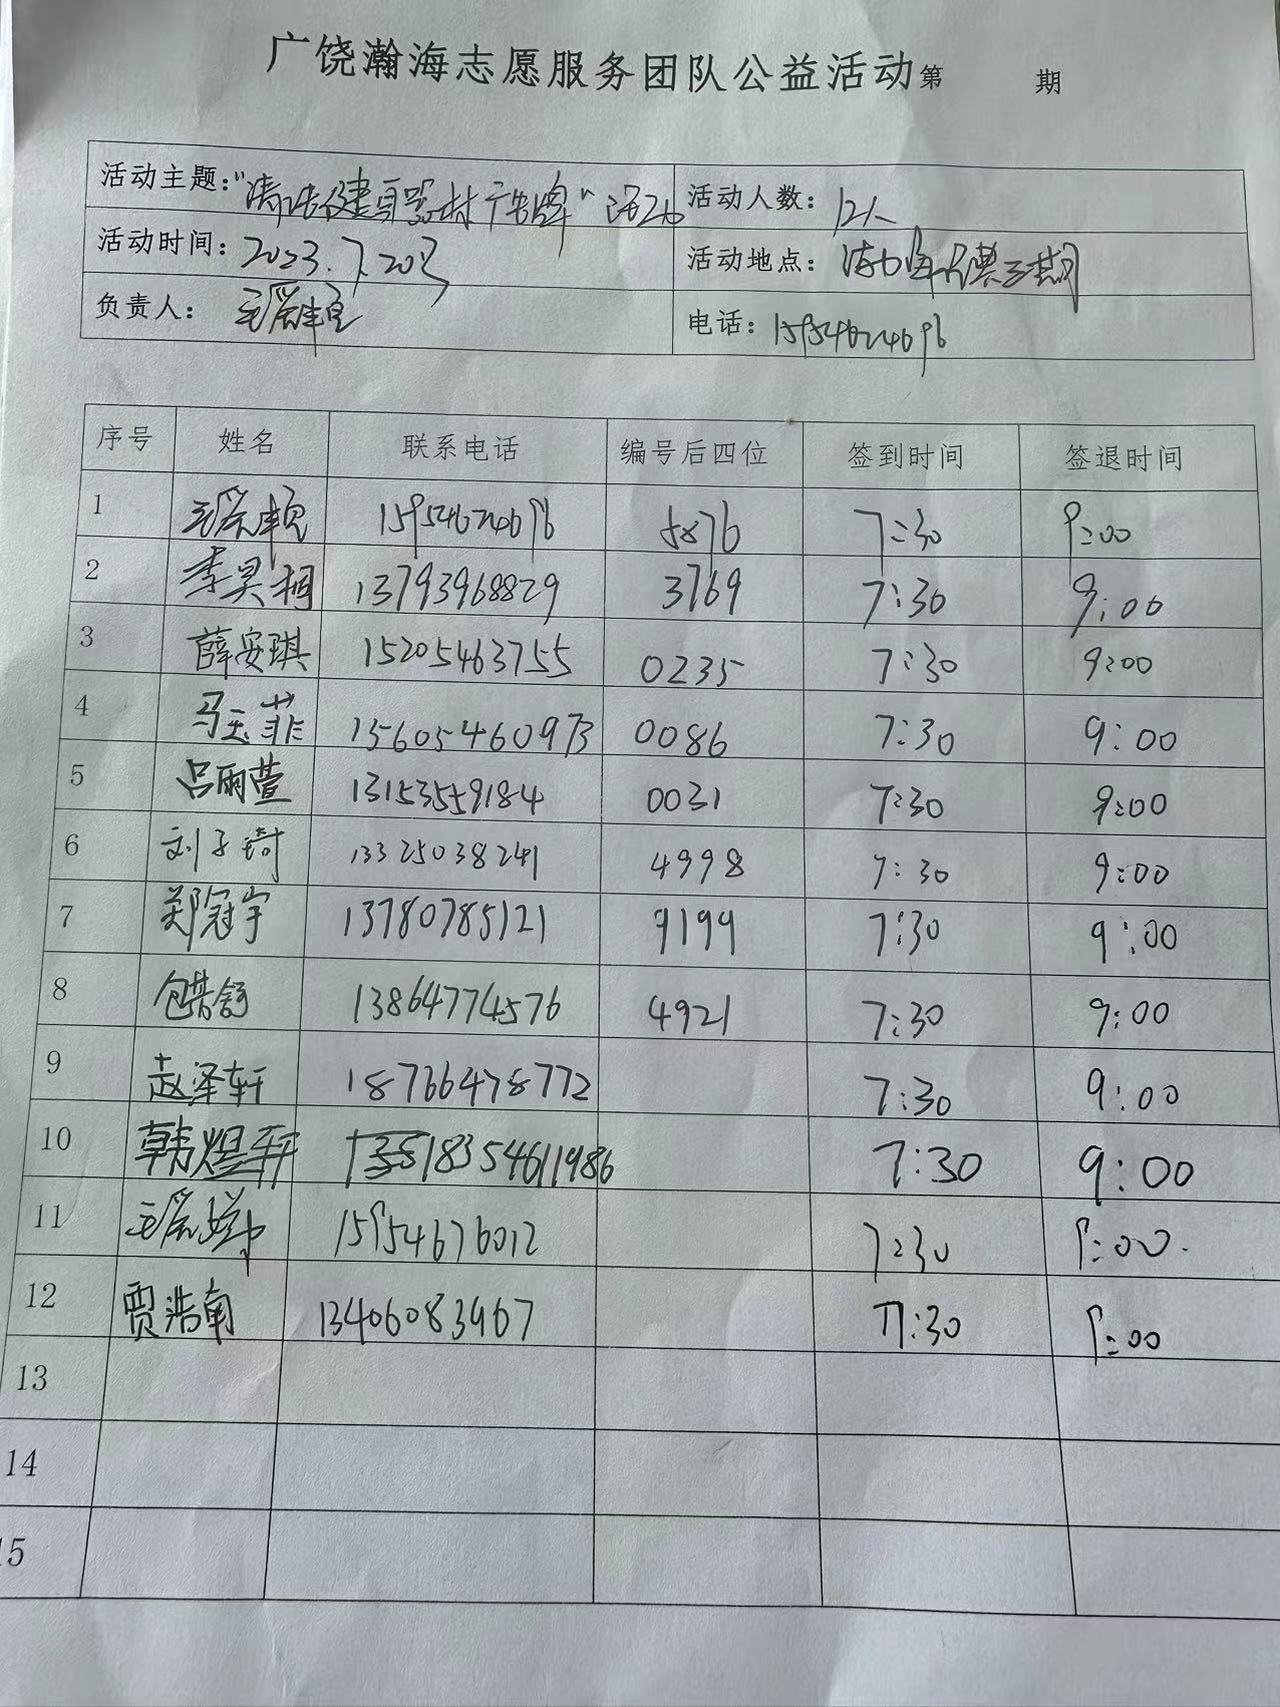 广饶瀚海志愿服务团队公益活动第 期
活动主题：“清洁健身器材广告牌”活动 活动人数：12人
活动时间：2023.7.20号 活动地点：
负责人： 电话：15954624696
序号 姓名 联系电话 编号后四位 签到时间 签退时间
1 15954624696 5876 7:30 9:00
2 李昊桐 13793968829 3769 7:30 9:00
3 薛安琪 15205463755 0235 7:30 9:00
4 马玉菲 15605460973 0086 7:30 9:00
5 吕雨萱 13153559184 0031 7:30 9:00
6 刘子琦 13325038241 4998 7:30 9:00
7 郑冠宇 13780785121 9199 7:30 9:00
8 包芸舒 13864774576 4921 7:30 9:00
9 赵泽轩 18766478772 7:30 9:00
10 韩煜轩 18354611986 7:30 9:00
11 15954676012 7:30 9:00.
12 贾浩南 13406083967 7:30 9:00
13
14
15